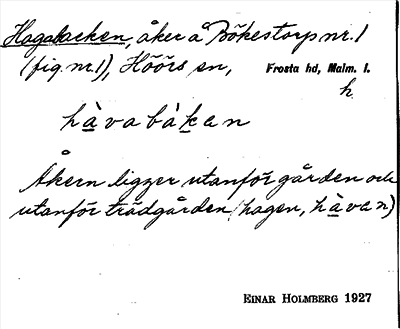 Hagabacken, åker å Bökestorp nr. 1
(fig. nr. 1), Höörs sn, Frosta hd, Malm. l.
h.
hàvabàkan
Åkern ligger utanför gården och
utanför trädgården (hagen, hàvan)
EINAR HOLMBERG 1927